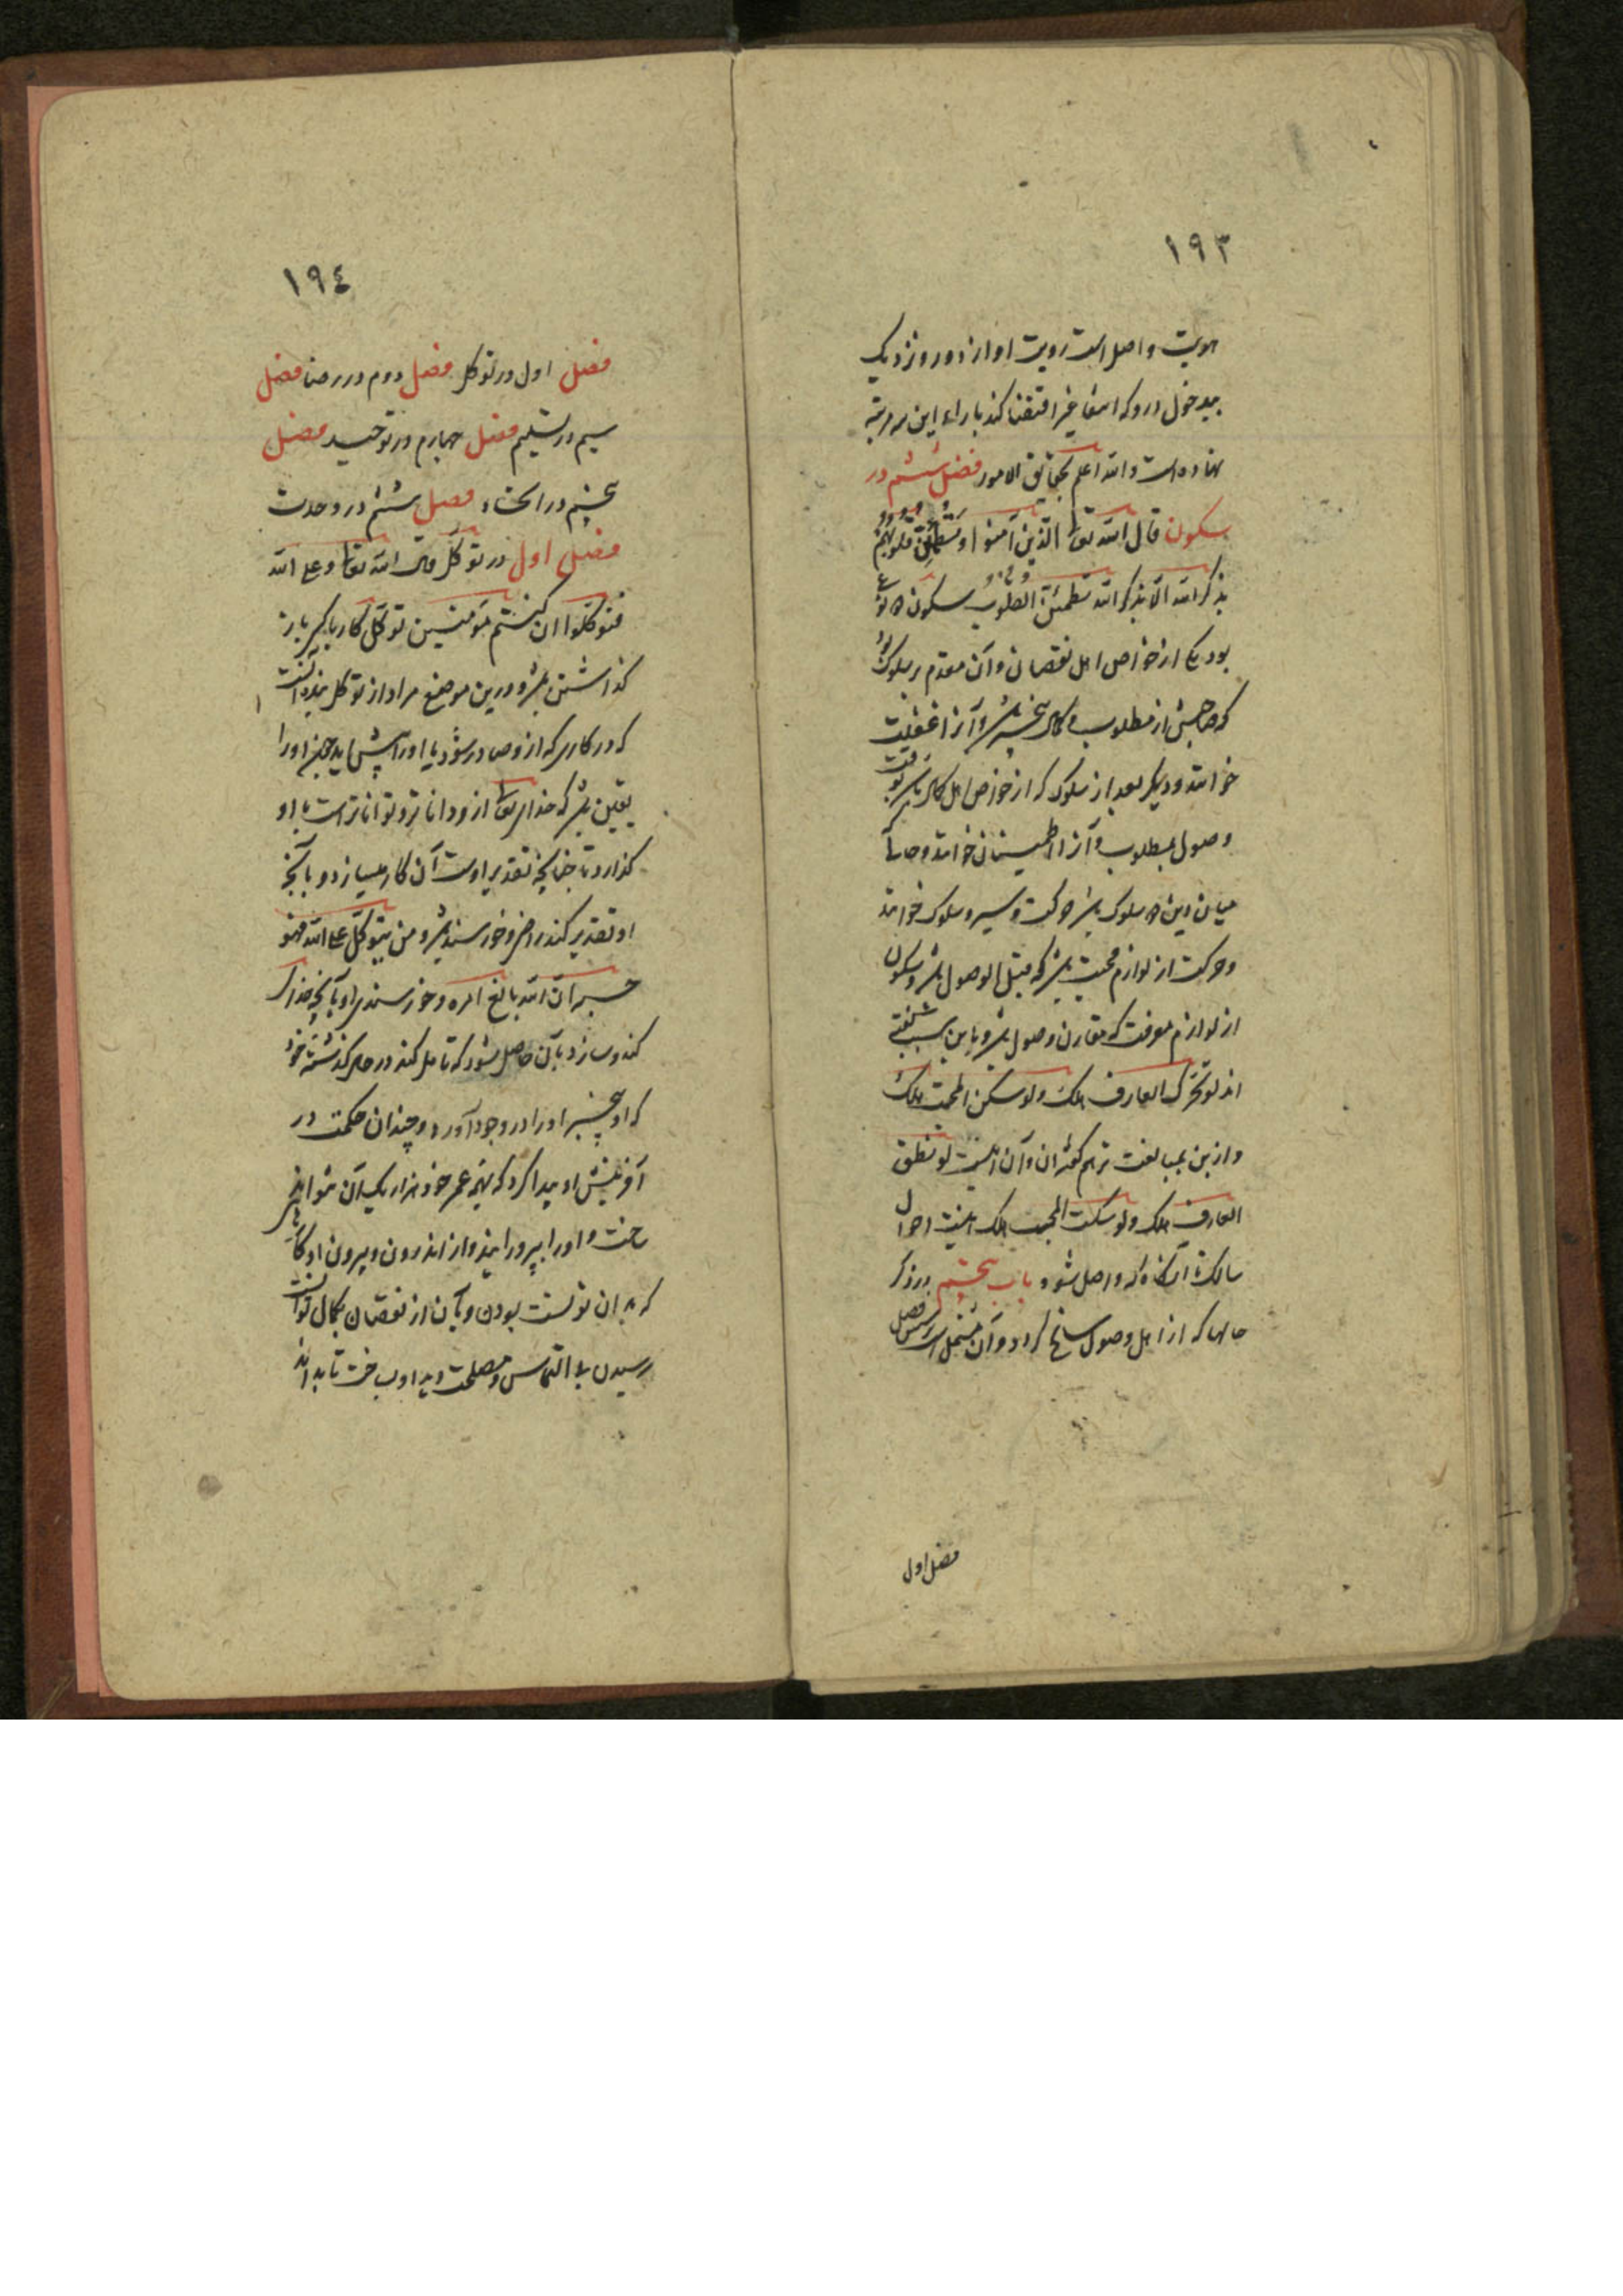 ۱۹۳
هویت واصل است رویت او از دور و نزدیک
بدخول درو که انتفا غیر اقتضا کند بازاء این سه مرتبه
نهاده است والله اعلم بحقائق الامور فصل ششم در
سکون قال الله تعا الذین آمنوا وتطمئن قلوبهم
بذکر الله الا بذکر الله تطمئن القلوب سکون دو نوع
بود یکی از خواص اهل نقصان وآن مقدم بر سلوک بود
که صاحبش از مطلوب و کمال بیخبر باشد وآنرا غفلت
خوانند و دیگر بعد از سلوک که از خواص اهل کمال باشد بوقت
وصول بمطلوب وآنرا اطمینان خوانند و حالی که
میان این دو سلوک باشد حرکت و سیر و سلوک خوانند
و حرکت از لوازم محبت باشد که قبل الوصول باشد و سکون
از لوازم معرفت که مقارن وصول باشد و باین سبب گفته
اند لو تحرک العارف هلک ولو سکن المحب هلک
و ازین بمبالغت تر هم گفته اند وآن اینست لو نطق
العارف هلک ولو سکت المحب هلک اینست احوال
سالک تا آنگاه که واصل شود باب پنجم در ذکر
حالها که از اهل وصول سانح گردد وآن مشتمل است بر شش فصل
فصل اول
۱۹٤
فصل اول در توکل فصل دوم در رضا فصل
سیم در تسلیم فصل چهارم در توحید فصل
پنجم در اتحاد فصل ششم در وحدت
فصل اول در توکل قال الله تعا وعلی الله
فتوکلوا ان کنتم مؤمنین توکل کار با کسی باز
گذاشتن باشد و درین موضع مراد از توکل بنده آنست
که در کاری که ازو صادر شود یا او را پیش آید چون او را
یقین باشد که خدای تعا ازو داناتر و تواناتر است با او
گذارد تا چنانکه تقدیر اوست آن کار میسازد و بآنچه
او تقدیر کند راضی و خورسند باشد ومن یتوکل علی الله فهو
حسبه ان الله بالغ امره و خورسندی او بآنچه خدای
کند و سازد بآن حاصل شود که تامل کند در حال گذشته خود
که اول بیخبر او را در وجود آورد و چندان حکمت در
آفرینش او پیدا کرد که بهمه عمر خود هزار یک آن نتواند
شناخت و او را بپرورانید و از اندرون و بیرون او کارهائی
که بدان توانست بودن و بآن از نقصان بکمال توانست
رسیدن بی التماس و مصلحت دید او بساخت تا بداند